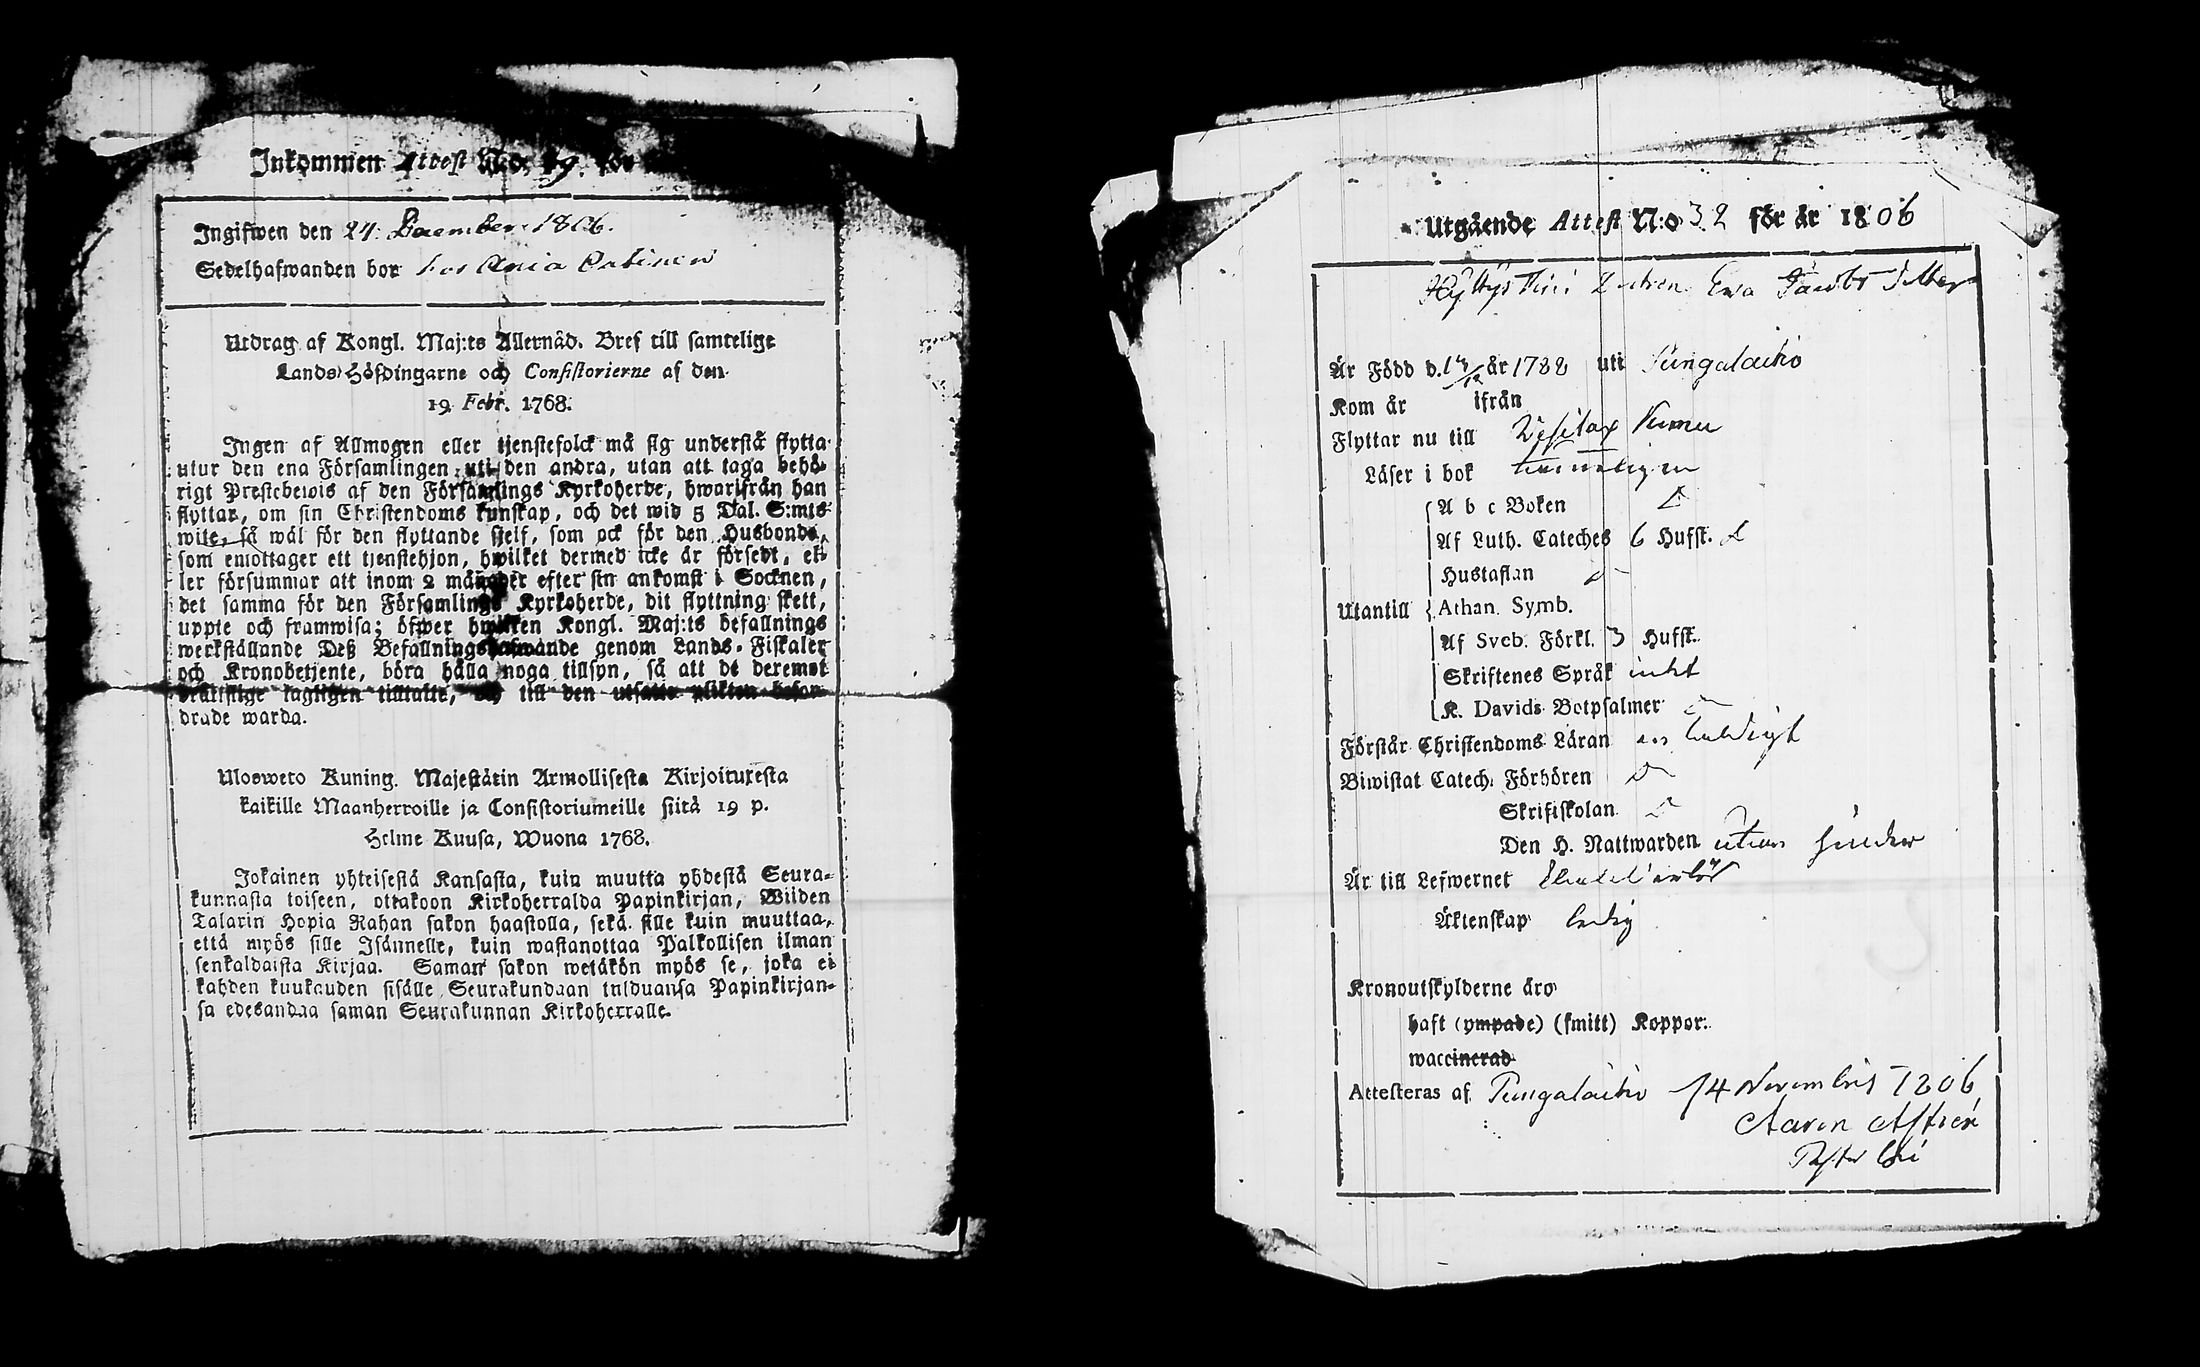 Inkommen Attest No. 19. för
Ingifwen den 24. December 1806.
Sedelhafwanden bor hos Ania
Utdrag af Kongl. Maj:ts Allernåd. Bref till samtelige
Lands-Höfdingarne och Consistorierne af den
19 Febr. 1768.
Ingen af Allmogen eller tjenstefolck må sig understå flytta
utur den ena Församlingen uti den andra, utan att taga behö-
rigt Prestebewis af den Församlings Kyrkoherde, hwarifrån han
flyttar, om sin Christendoms kunskap, och det wid 5 Dal. S:mts
wite, så wäl för den flyttande sielf, som ock för den Husbonde,
som emottager ett tjenstehjon, hwilket dermed icke är försedt, el-
ler försummar att inom 2 månader efter sin ankomst i Socknen,
det samma för den Församlings Kyrkoherde, dit flyttning skett,
uppte och framwisa; öfwer hwilken Kongl. Maj:ts befallnings
werkställande Deß Befallningshafwande genom Lands-Fiskaler
och Kronobetjente, böra hålla noga tillsyn, så att de deremot
bråttslige lagligen tilltalte, och till den utsatte plikten befor-
drade warda.
Ulosweto Kuning. Majestätin Armollisesta Kirjoituxesta
kaikille Maanherroille ja Consistoriumeille siitä 19 p.
Helme Kuusa, Wuona 1768.
Jokainen yhteisestä Kansasta, kuin muutta yhdestä Seura-
kunnasta toiseen, ottakoon Kirkoherralda Papinkirjan, Wiiden
Talarin Hopia Rahan sakon haastolla, sekä sille kuin muuttaa,
että myös sille Isännelle, kuin wastanottaa Palkollisen ilman
senkaldaista Kirjaa. Saman sakon wetäkön myös se, joka ei
kahden kuukauden sisälle Seurakundaan tulduansa Papinkirjan-
sa edesandaa saman Seurakunnan Kirkoherralle.
Utgående Attest N:o 32 för år 1806
Ewa Jacobs Dotter
Är Född d. 14/12 år 1788 uti Pungalaitio
Kom år ifrån
Flyttar nu till Wesilax Kumu
Läser i bok
A b c Boken
Af Luth. Cateches 6 Hufst.
Hustaflan
Utantill Athan. Symb.
Af Sveb. Förkl. 3 Hufst.
Skriftenes Språk intet
K. Davids Botpsalmer
Förstår Christendoms Läran
Biwistat Catech. Förhören
Skriftskolan
Den H. Nattwarden utan hinder
Är till Lefwernet
Äktenskap ledig
Kronoutskylderne äro
haft (ympade) (smitt) Koppor.
waccinerad
Attesteras af Pungalaitio 14 Novembris 1806
Aaron